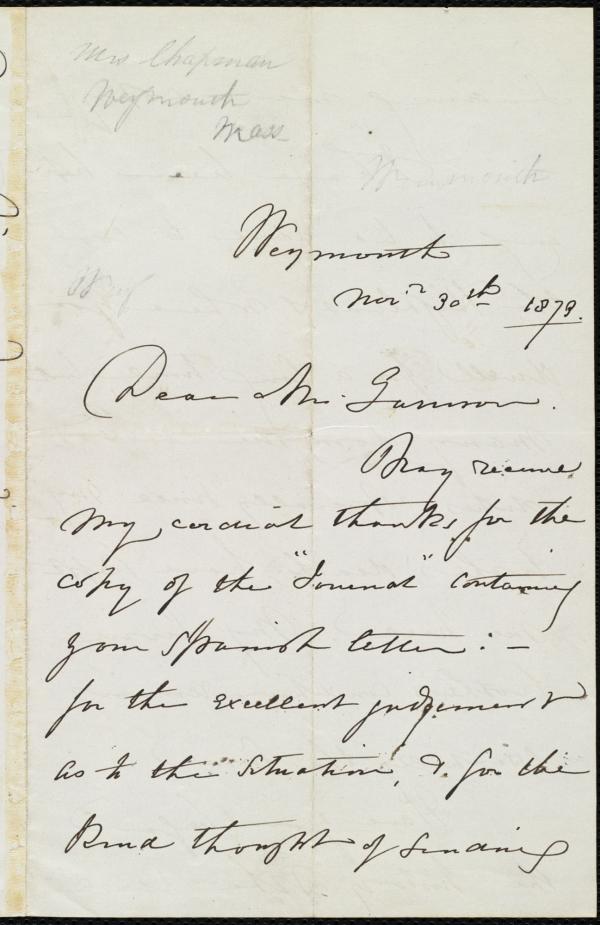 Mrs Chapman
Weymouth
Mass
Weymouth
Weymouth
Nov.r 30th 1873.
Dear Mr. Garrison.
Pray receive
my cordial thanks for the
copy of the "Journal" containing
your Spanish letter: —
for the excellent judgement
as to the situation, & for the
kind thought of sending